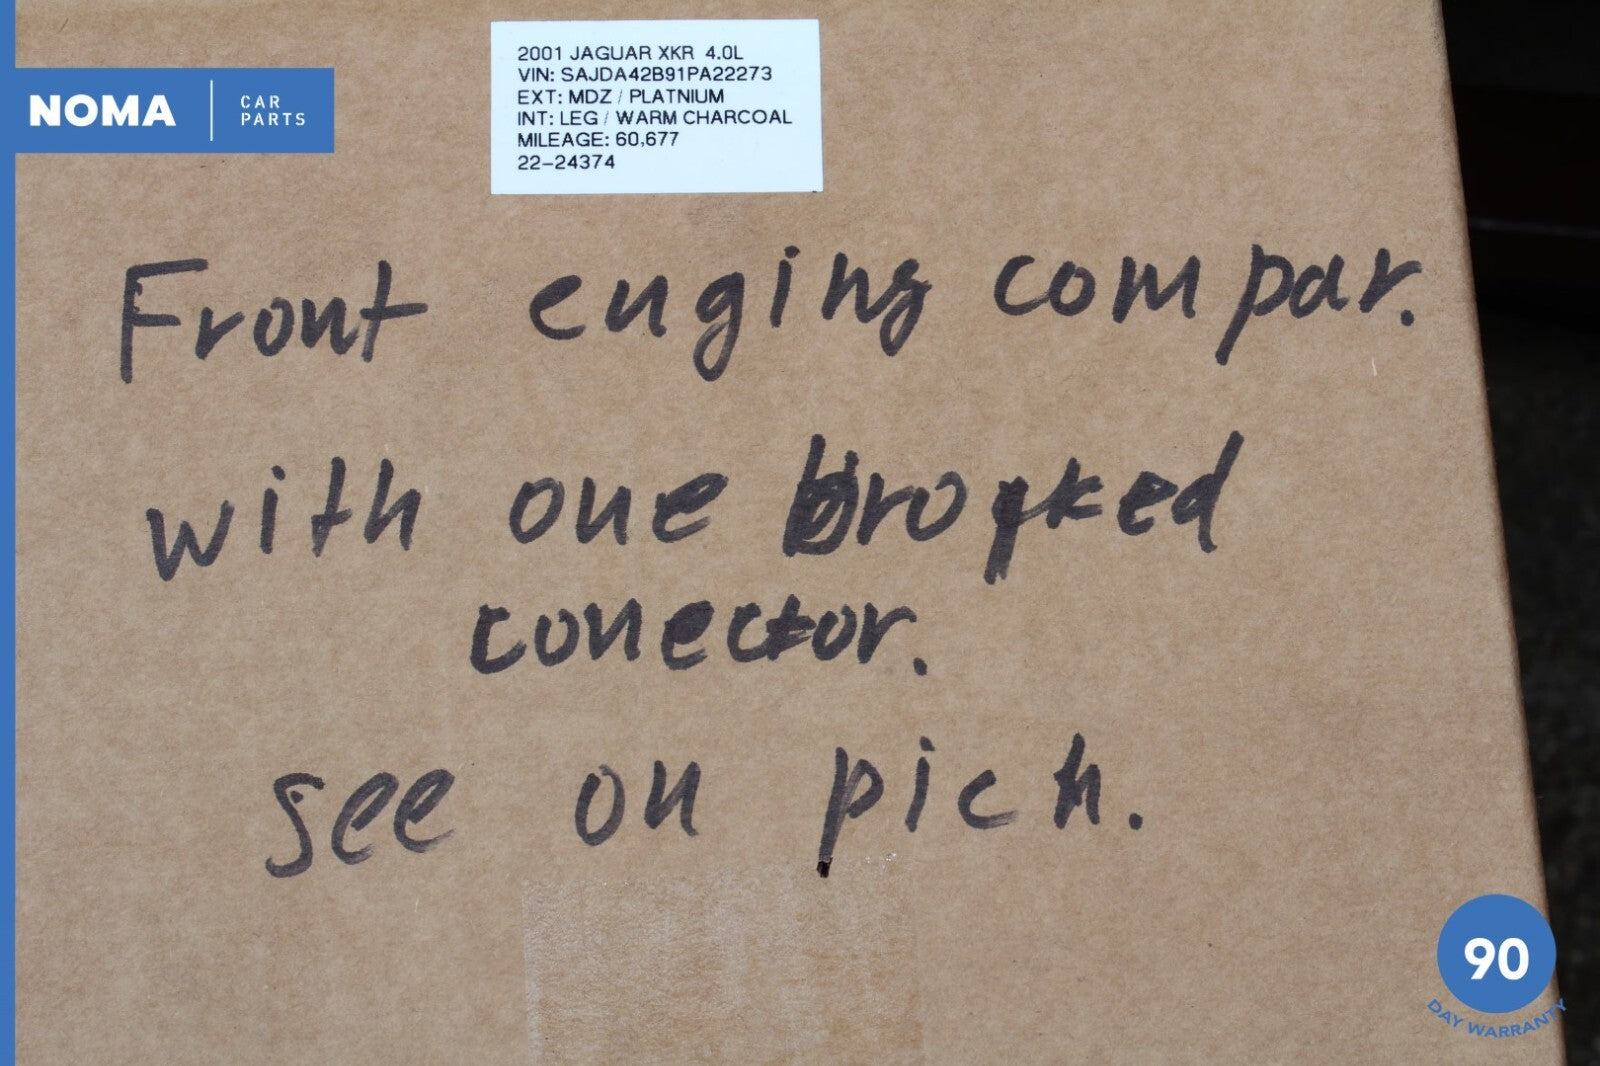 NOMA
CAR
PARTS
2001 JAGUAR XKR 4.0L
VIN: SAJDA42B91PA22273
EXT: MDZ / PLATNIUM
INT: LEG / WARM CHARCOAL
MILEAGE: 60,677
22-24374
Front enging compar.
with one brocked
conector.
see on pich.
90
DAY WARRANTY